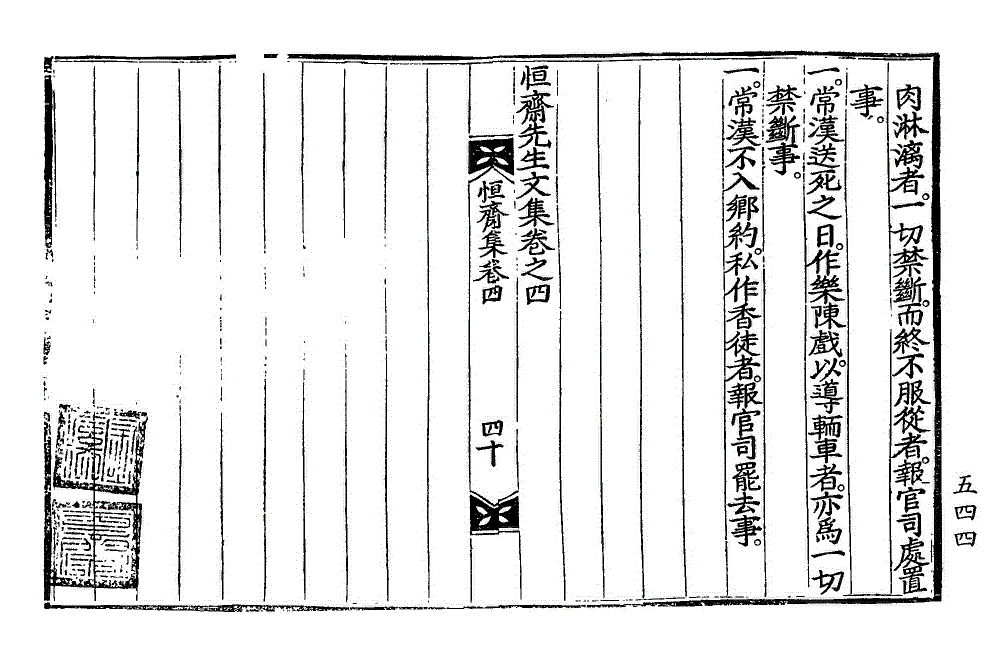 肉淋漓者。一切禁斷。而終不服從者。報官司處置
事。
一。常漢送死之日。作樂陳戲。以導輀車者。亦爲一切
禁斷事。
一。常漢不入鄕約。私作香徒者。報官司罷去事。
恒齋先生文集卷之四
恒齋集卷四
四十
五四四